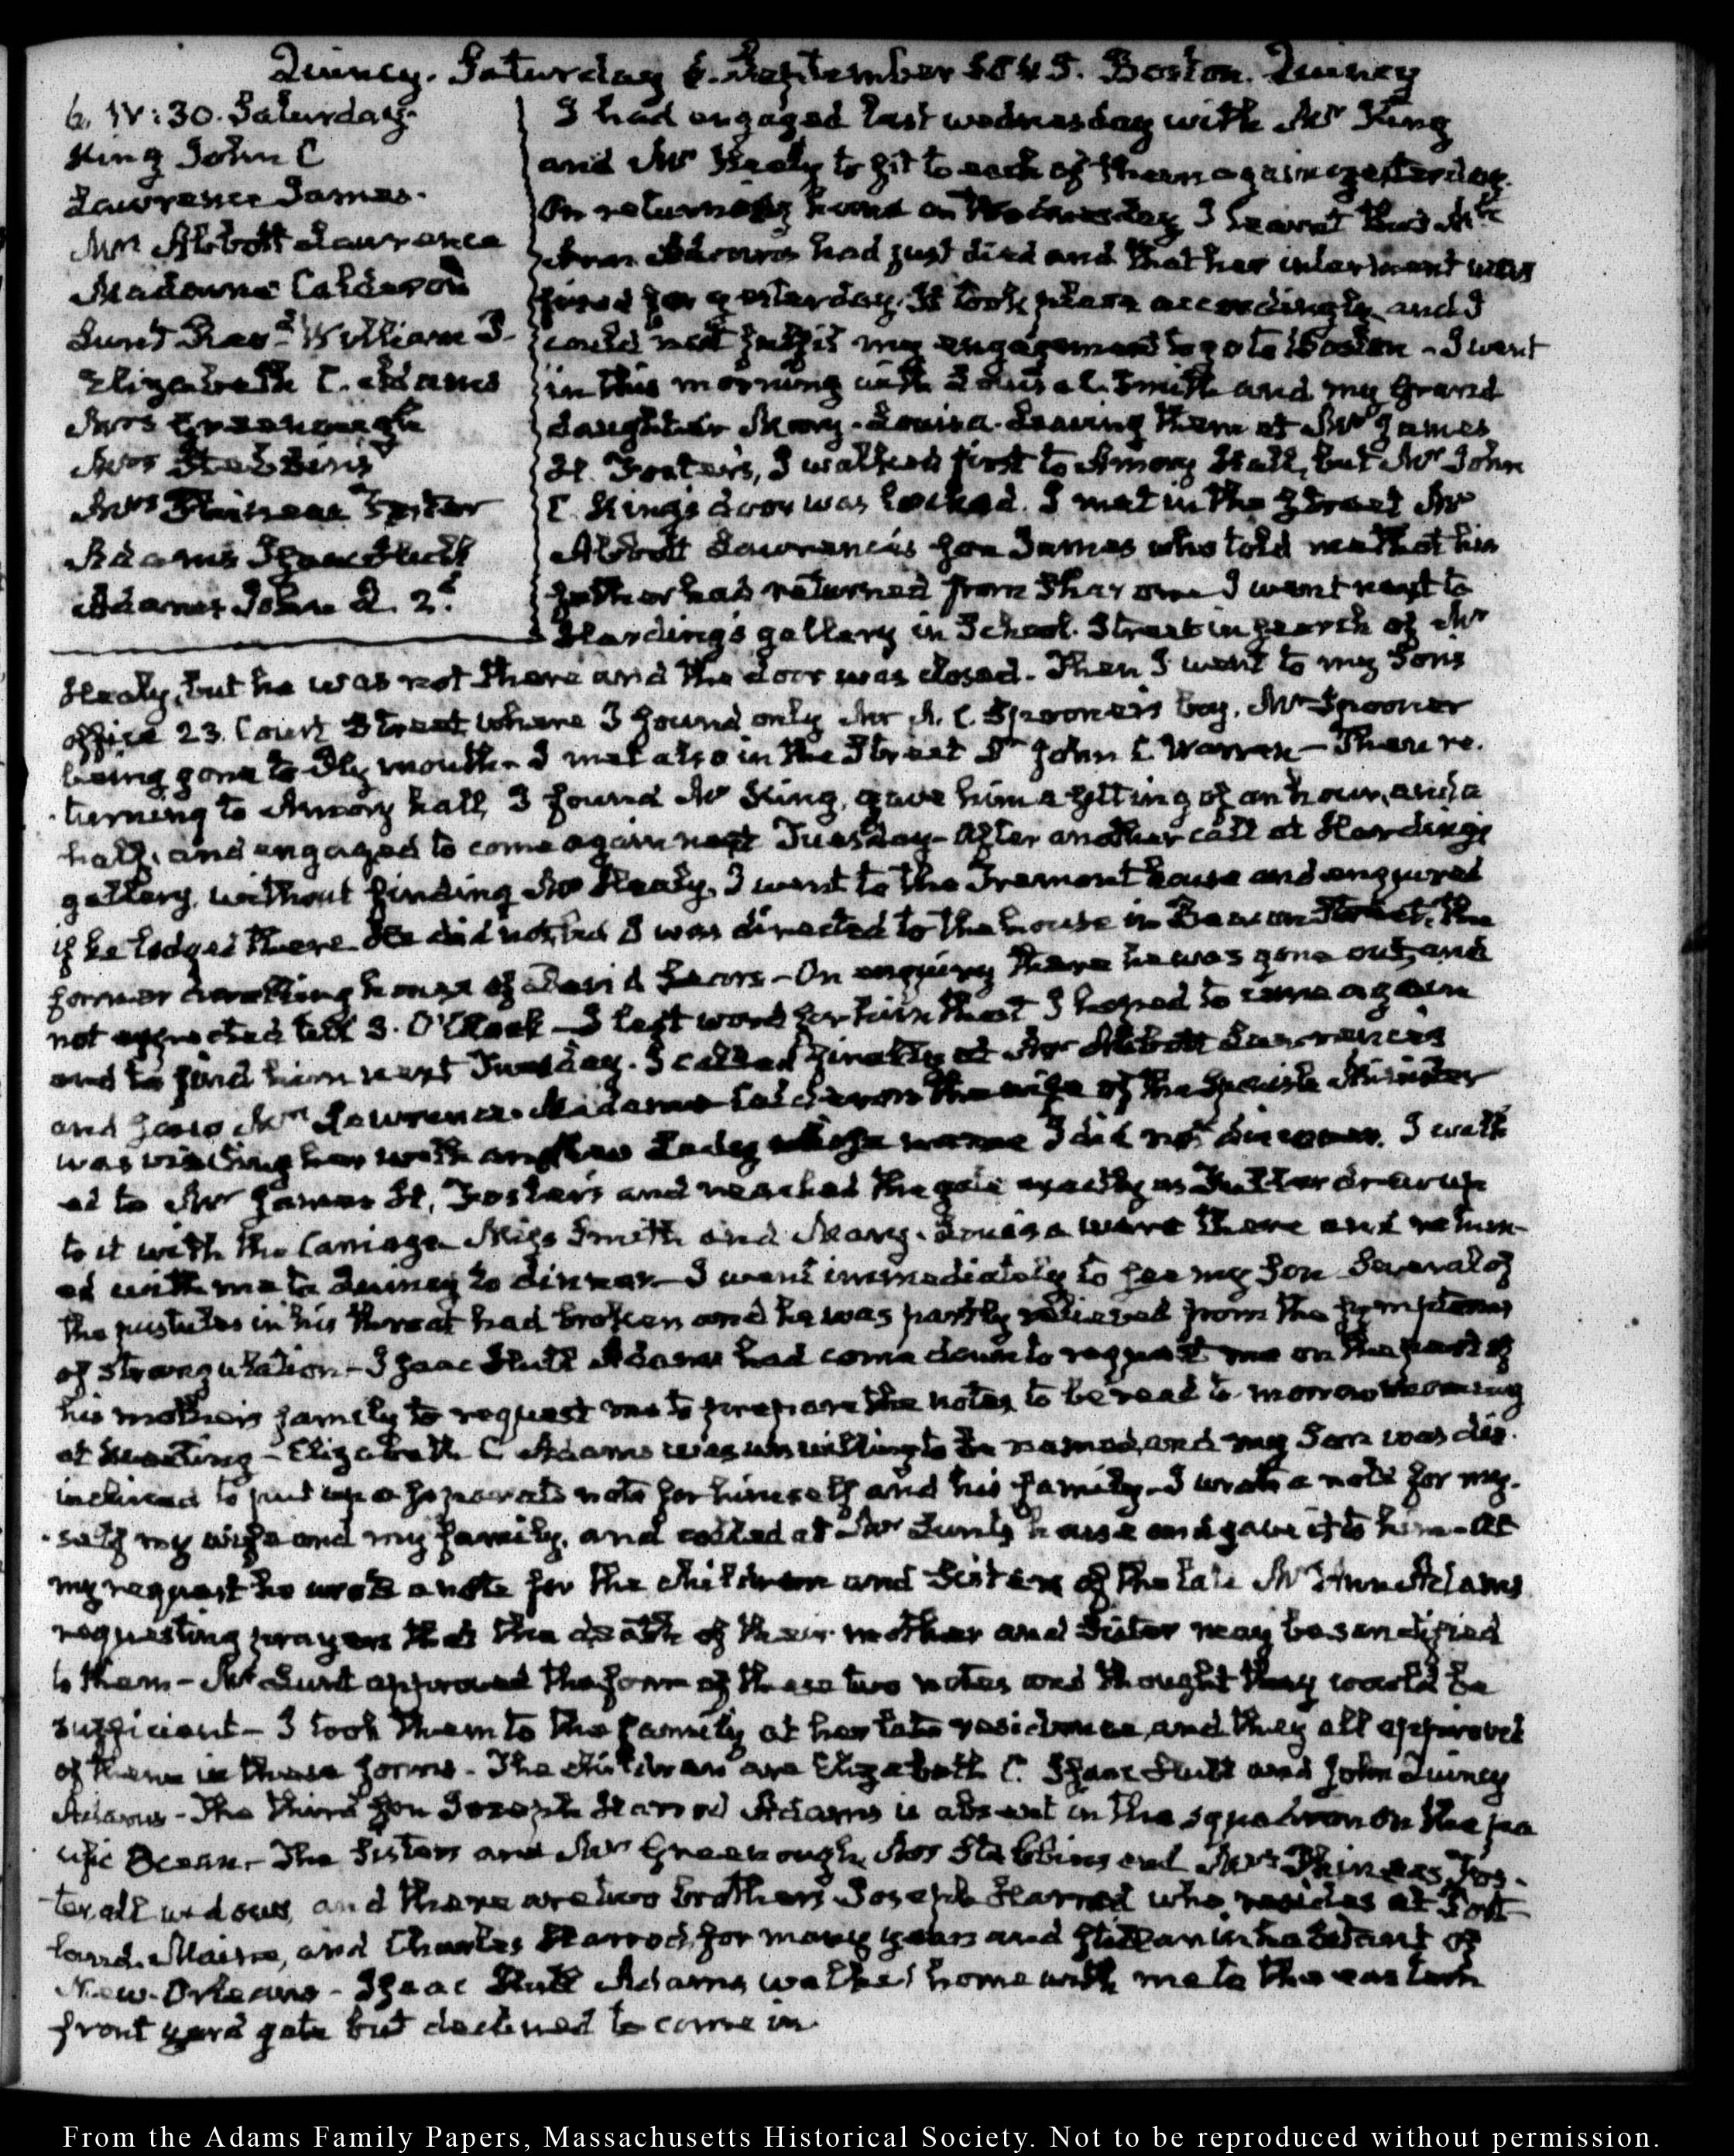 Quincy. Saturday 6. September 1845. Boston. Quincy
6. IV:30. Saturday.
King John C
Lawrence James.
Mrs Abbott Lawrence
Madame Calderon
Lunt Revd William P.
Elizabeth C. Adams
Mrs Greenough
Mrs Stebbins
Mrs Phineas Foster
Adams Isaac Hull
Adams John Q. 2d
I had engaged last wednesday with Mr King
and Mr Healy to sit to each of them again yesterday.
On returning home on Wednesday I learnt that Mrs
Ann Adams had just died and that her interment was
fixed for yesterday. It took place accordingly and I
could not fulfil my engagement to go to Boston - I went
in this morning with Louisa C. Smith and my Grand
daughter Mary-Louisa. Leaving them at Mr James
H. Foster's, I walked first to Amory Hall, but Mr John
C. King's door was locked. I met in the Street Mr
Abbott Lawrence's son James who told me that his
father had returned from Sharon I went next to
Harding's gallery in School-Street in search of Mr
Healy, but he was not there and the door was closed. Then I went to my Son's
office 23. Court Street where I found only Mr A. C. Spooner's boy, Mr Spooner
being gone to Plymouth - I met also in the Street Dr John C Warren - Then re-
turning to Amory hall, I found Mr King, gave him a sitting of an hour and a
half, and engaged to come again next Tuesday - After another call at Harding's
gallery, without finding Mr Healy, I went to the Tremont house and enquired
if he lodged there. He did not, but I was directed to the house in Beacon Street, the
former dwelling house of David Sears - On enquiry there he was gone out, and
not expected till 3. O'Clock - I left word for him that I hoped to come again
and to find him next Tuesday. I called finally at Mr Abbott Lawrence's
and saw Mrs Lawrence. Madame Calderon the wife of the Spanish Minister
was visiting her with another Lady whose name I did not discover. I walk
ed to Mr James H. Foster's and reached the gate exactly as drew up
to it with the Carriage Miss Smith and Mary-Louisa were there and return-
ed with me to Quincy to dinner - I went immediately to see my Son Several of
the pustules in his throat had broken and he was partly relieved from the symptoms
of strangulation - Isaac Hull Adams had come down to request me on the part of
his mother's family to request me to prepare the notes to be read to-morrow morning
at meeting - Elizabeth C Adams was unwilling to be named, and my Son was dis-
inclined to put up a separate note for himself and his family - I wrote a note for my-
self my wife and my family, and called at Mr Lunt's house and gave it to him - At
my request he wrote a note for the children and Sisters of the late Mrs Ann Adams
requesting prayers that the death of their mother and Sister may be sanctified
to them - Mr Lunt approved the form of these two notes and thought they would be
sufficient - I took them to the family at her late residence, and they all approved
of them in these forms - The children are Elizabeth C. Isaac Hull and John Quincy
Adams - The third Son Joseph Harrod Adams is absent in the squadron on the pa
cific Ocean - The Sisters are Mrs Greenough, Mrs Stebbins and Mrs Phineas Fos-
ter all widows, and there are two brothers Joseph Harrod who resides at Port-
land. Maine, and Charles Harrod, for many years and still an inhabitant of
New-Orleans - Isaac Hull Adams walked home with me to the eastern
front yard gate but declined to come in
From the Adams Family Papers, Massachusetts Historical Society. Not to be reproduced without permission.